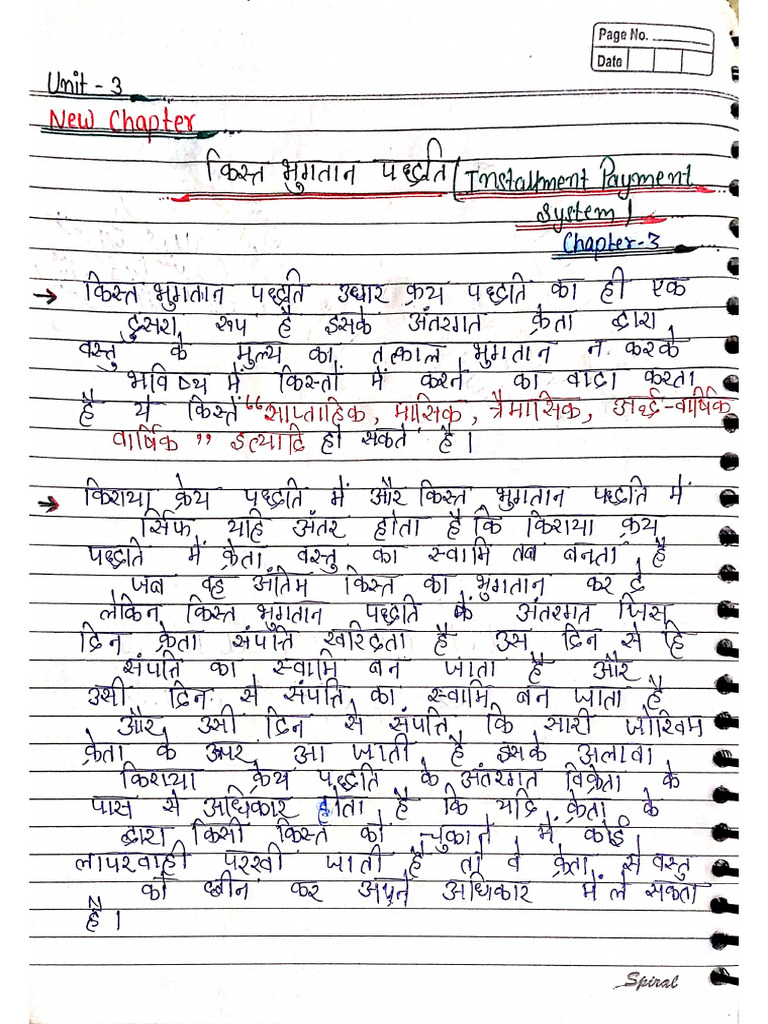 Page No.
Date
Unit - 3
New Chapter
किस्त भुगतान पद्धति (Instalpment Payment
System)
Chapter-3
→ किस्त भुगतान पद्धति उधार क्रय पद्धति का ही एक
दुसरा रूप है इसके अंतरगत क्रेता द्वारा
वस्तु के मुल्य का तत्काल भुगतान न करके
भविष्य में किस्तों में करने का वादा करता
है ये किस्तें “साप्ताहिक, मासिक, त्रैमासिक, अर्द्ध-वार्षिक
वार्षिक” इत्यादि हो सकते है।
→ किराया क्रेय पद्धति में और किस्त भुगतान पद्धति में
र्सिफ यहि अंतर होता है कि किराया क्रय
पद्धति में क्रेता वस्तु का स्वामि तब बनता है
जब वह अंतिम किस्त का भुगतान कर दे
लेकिन किस्त भुगतान पद्धति के अंतरगत जिस
दिन क्रेता संपत्ति खरिदता है उस दिन से हि
संपत्ति का स्वामि बन जाता है और
उसी दिन से संपत्ति का स्वामि बन जाता है
और उसी दिन से संपत्ति कि सारी जोखिम
क्रेता के ऊपर आ जाती है इसके अलावा
किराया क्रेय पद्धति के अंतरगत विक्रेता के
पास से अधिकार होता है कि यदि क्रेता के
द्वारा किसी किस्त को चुकाने में कोई
लापरवाही परखी जाती है तो वे क्रेता से वस्तु
को छीन कर अपने अधिकार में ले सकता
है।
Spiral